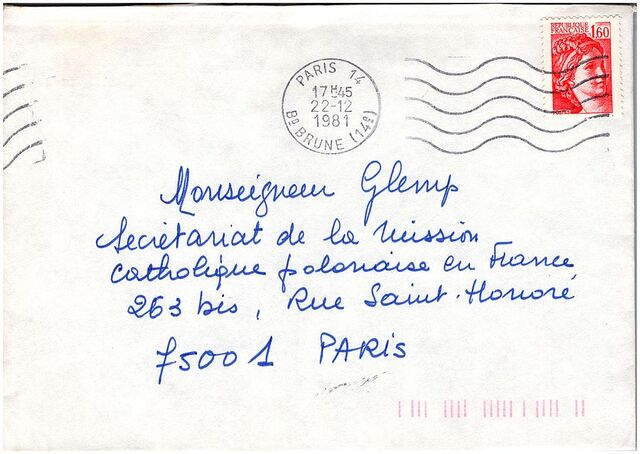 REPUBLIQUE FRANCAISE 1,60
PARIS 14
17H45
22-12
1981
Bd BRUNE (14e)
Monseigneur Glemp
Secrétariat de la Mission
catholique polonaise en France
263 bis, Rue Saint-Honoré
75001 PARIS